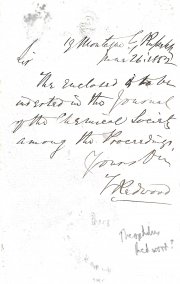 19 Montague St, Russell Sq
June 26, 1852
Sir
The enclosed is to be
inserted in the Journal
of the Chemical Society
among the Proceedings.
Yours
T Redwood
Theophilus
Redwood?